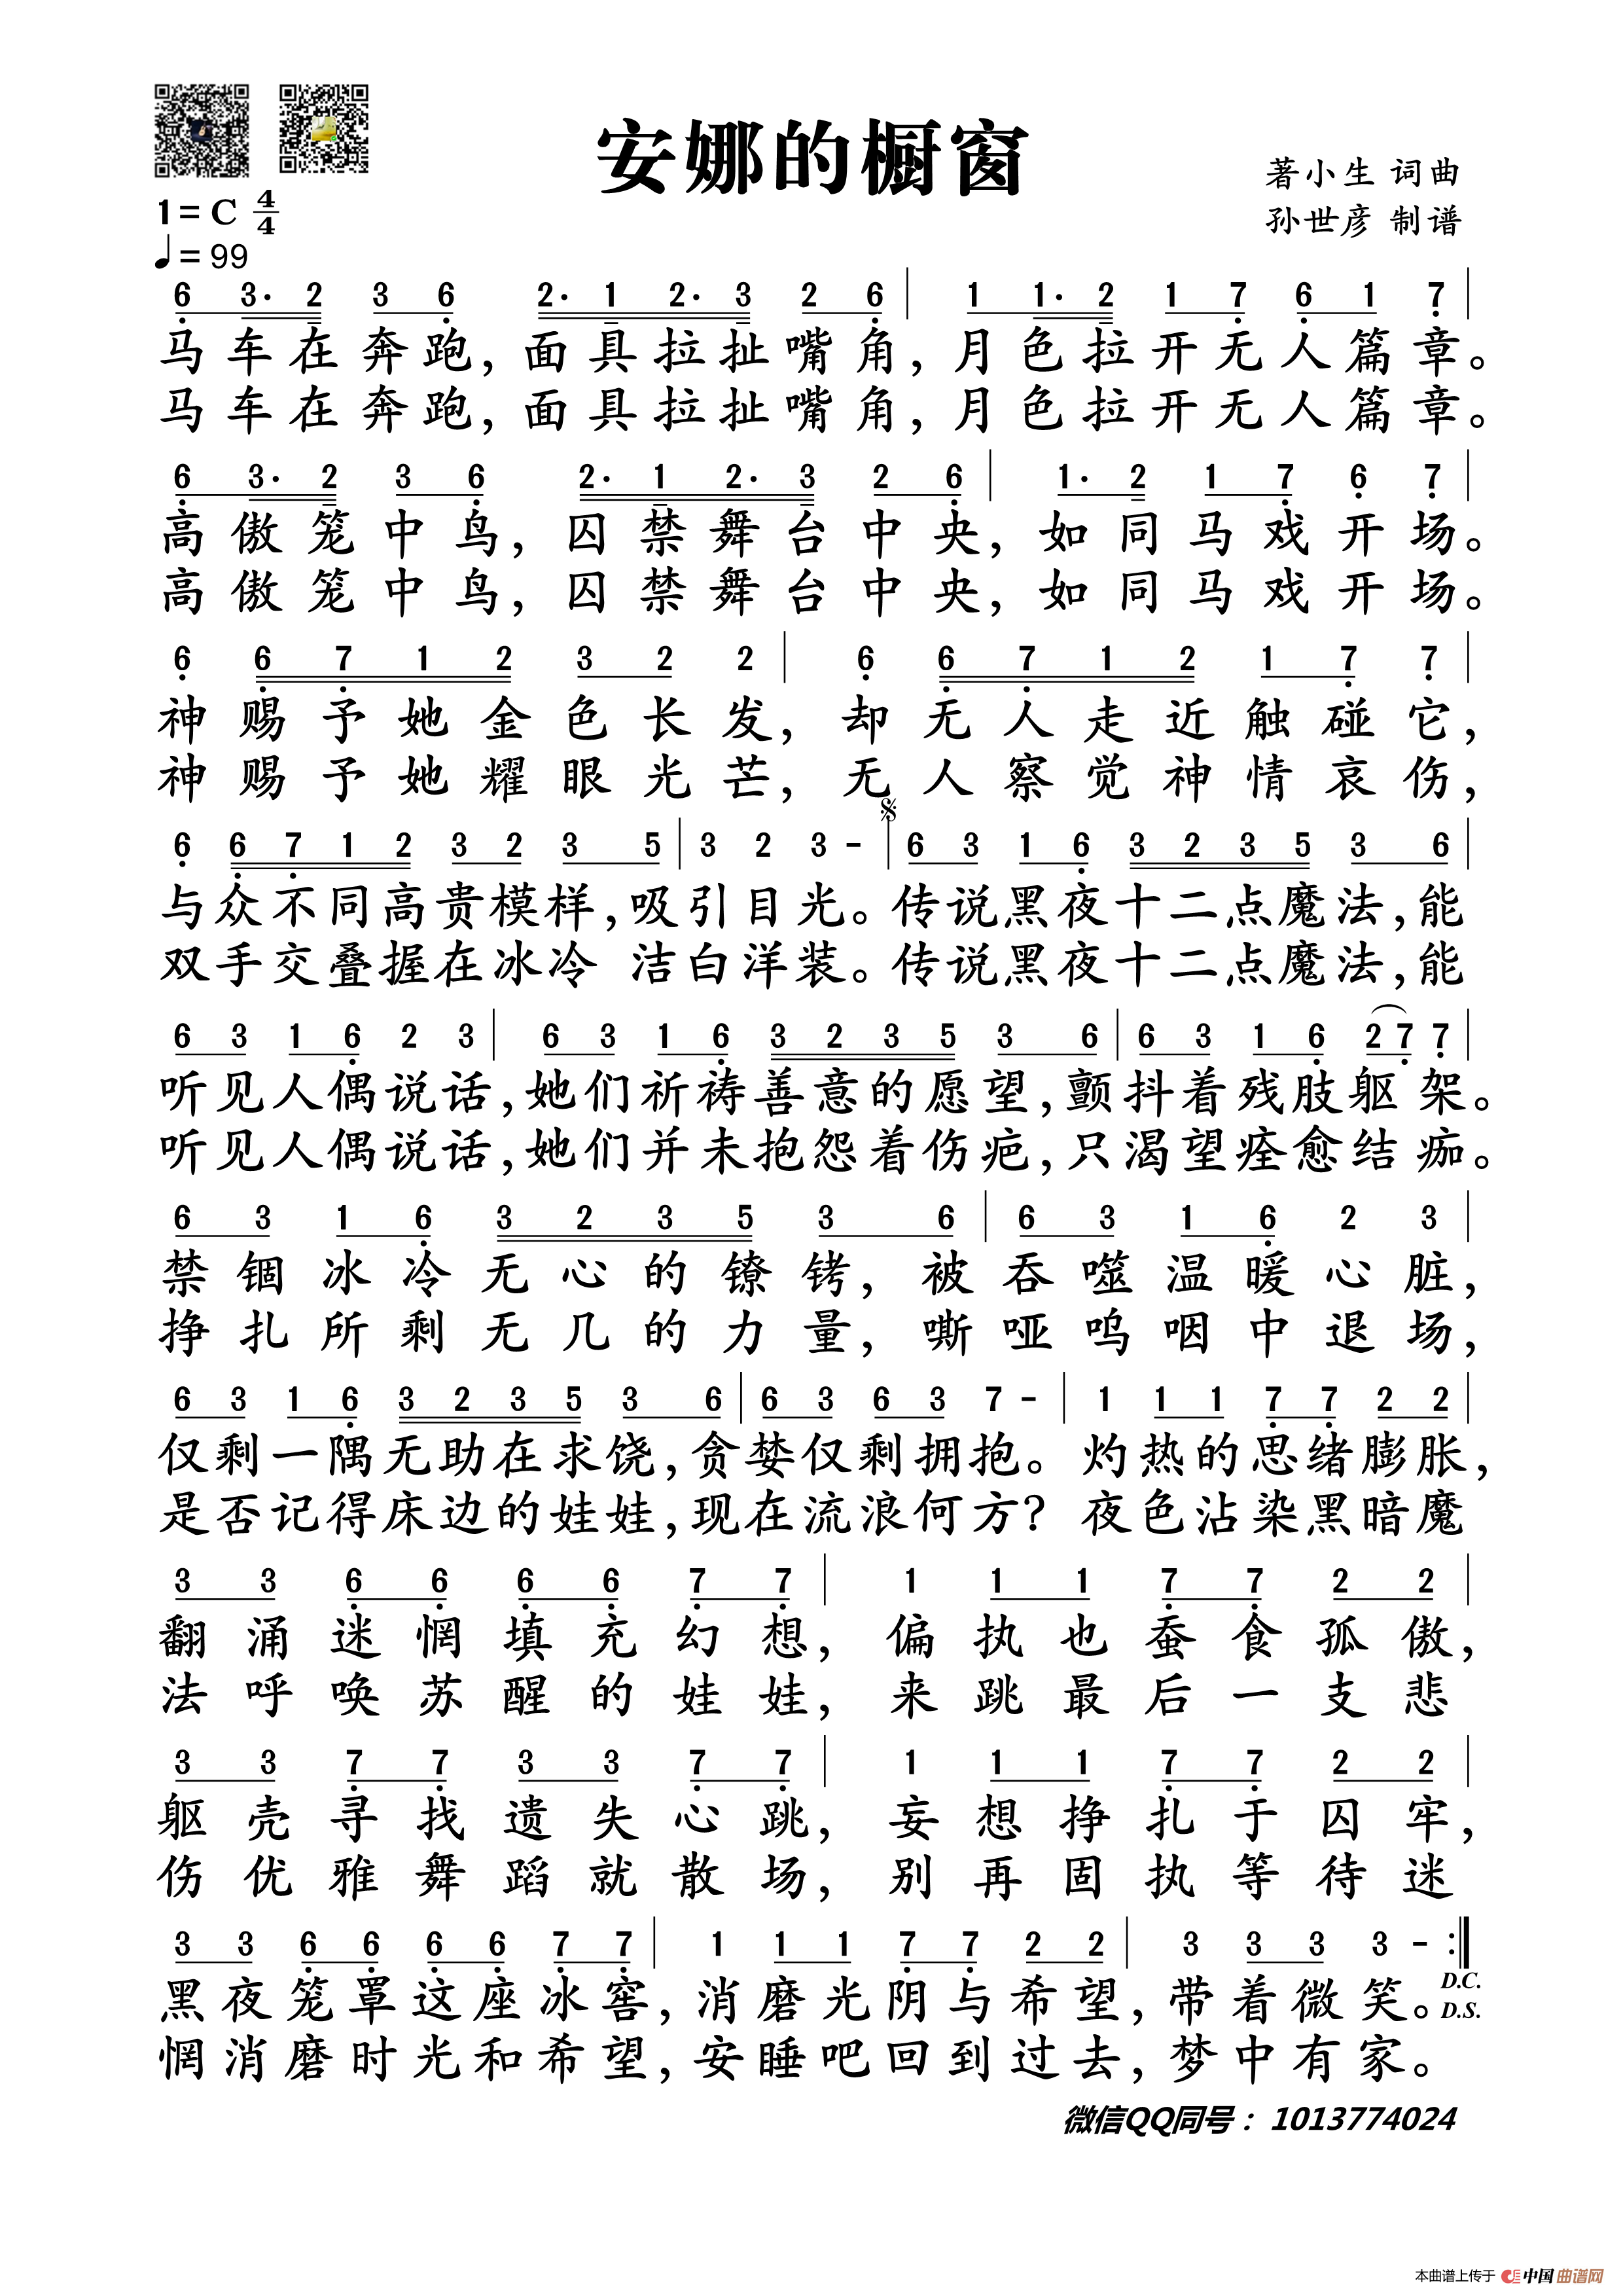 安娜的橱窗
著小生 词曲
孙世彦 制谱
1=C 4/4
♩=99
6 3· 2 3 6 2· 1 2· 3 2 6 | 1 1· 2 1 7 6 1 7 |
马车在奔跑，面具拉扯嘴角，月色拉开无人篇章。
马车在奔跑，面具拉扯嘴角，月色拉开无人篇章。
6 3· 2 3 6 2· 1 2· 3 2 6 | 1· 2 1 7 6 7 |
高傲笼中鸟，囚禁舞台中央，如同马戏开场。
高傲笼中鸟，囚禁舞台中央，如同马戏开场。
6 6 7 1 2 3 2 2 | 6 6 7 1 2 1 7 7 |
神赐予她金色长发，却无人走近触碰它，
神赐予她耀眼光芒，无人察觉神情哀伤，
6 6 7 1 2 3 2 3 5 | 3 2 3 - | 6 3 1 6 3 2 3 5 3 6 |
与众不同高贵模样，吸引目光。传说黑夜十二点魔法，能
双手交叠握在冰冷 洁白洋装。传说黑夜十二点魔法，能
6 3 1 6 2 3 | 6 3 1 6 3 2 3 5 3 6 | 6 3 1 6 2 7 7 |
听见人偶说话，她们祈祷善意的愿望，颤抖着残肢躯架。
听见人偶说话，她们并未抱怨着伤疤，只渴望痊愈结痂。
6 3 1 6 3 2 3 5 3 6 | 6 3 1 6 2 3 |
禁锢冰冷无心的镣铐，被吞噬温暖心脏，
挣扎所剩无几的力量，嘶哑呜咽中退场，
6 3 1 6 3 2 3 5 3 6 | 6 3 6 3 7 - | 1 1 1 7 7 2 2 |
仅剩一隅无助在求饶，贪婪仅剩拥抱。灼热的思绪膨胀，
是否记得床边的娃娃，现在流浪何方？夜色沾染黑暗魔
3 3 6 6 6 6 7 7 | 1 1 1 7 7 2 2 |
翻涌迷惘填充幻想，偏执也蚕食孤傲，
法呼唤苏醒的娃娃，来跳最后一支悲
3 3 7 7 3 3 7 7 | 1 1 1 7 7 2 2 |
躯壳寻找遗失心跳，妄想挣扎于囚牢，
伤优雅舞蹈就散场，别再固执等待迷
3 3 6 6 6 6 7 7 | 1 1 1 7 7 2 2 | 3 3 3 3 - :|
黑夜笼罩这座冰窖，消磨光阴与希望，带着微笑。D.C.
D.S.
惘消磨时光和希望，安睡吧回到过去，梦中有家。
微信QQ同号：1013774024
本曲谱上传于 中国曲谱网